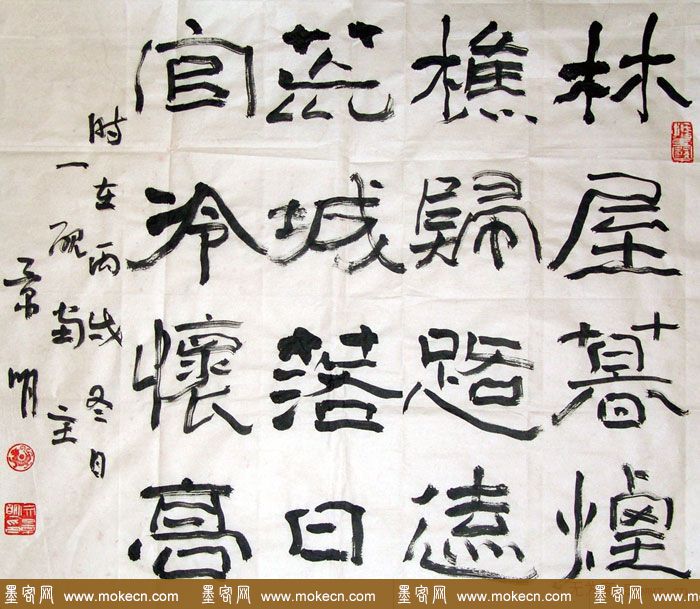 林屋暮煙
樵歸路遠
荒城落日
官冷懷高
时在丙戌冬日
一砚斋主
景明
墨客网 www.mokecn.com 墨客网 www.mokecn.com 墨客网 www.mokecn.com 墨客网 www.mokecn.com